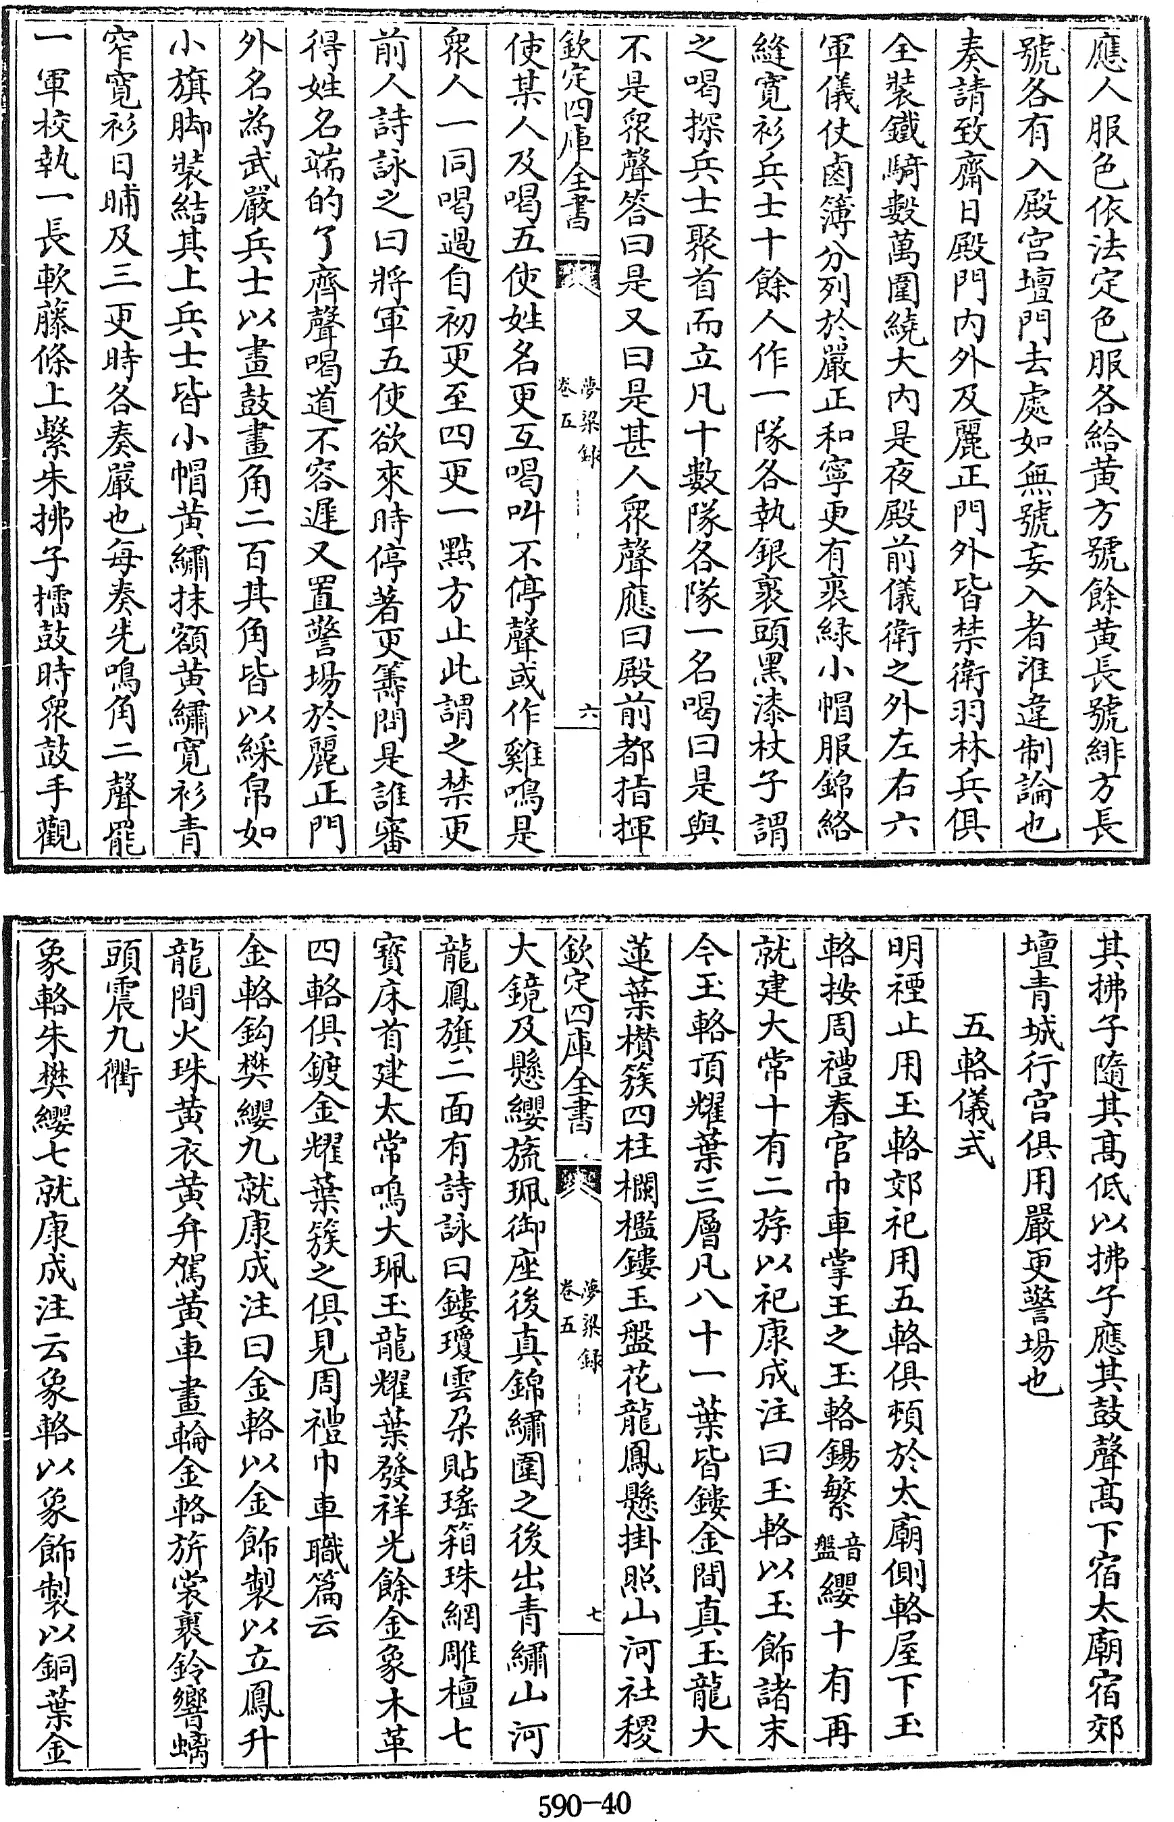 應人服色依法定色服各給黄方號餘黄長號緋方長
號各有入殿宫壇門去處如無號妄入者准違制論也
奏請致齋日殿門内外及麗正門外皆禁衛羽林兵俱
全裝鐵騎數萬圍繞大内是夜殿前儀衛之外左右六
軍儀仗鹵簿分列於嚴正和寧更有裹緑小帽服錦絡
縫寛衫兵士十餘人作一隊各執銀裹頭黑漆杖子謂
之喝探兵士聚首而立凡十數隊各隊一名喝曰是與
不是衆聲答曰是又曰是甚人衆聲應曰殿前都指揮
欽定四庫全書
夢梁録
卷五
六
使某人及喝五使姓名更互喝叫不停聲或作雞鳴是
衆人一同喝過自初更至四更一點方止此謂之禁更
前人詩詠之曰將軍五使欲來時停著更籌問是誰審
得姓名端的了齊聲喝道不容遲又置警場於麗正門
外名為武嚴兵士以畫鼓畫角二百其角皆以綵帛如
小旗脚裝結其上兵士皆小帽黄繡抹額黄繡寛衫青
窄寛衫日晡及三更時各奏嚴也每奏先鳴角二聲罷
一軍校執一長軟藤條上繫朱拂子擂鼓時衆鼓手觀
其拂子隨其髙低以拂子應其鼓聲髙下宿太廟宿郊
壇青城行宫俱用嚴更警場也
五輅儀式
明禋止用玉輅郊祀用五輅俱頓於太廟側輅屋下玉
輅按周禮春官巾車掌王之玉輅錫繁音盤纓十有再
就建大常十有二斿以祀康成注曰玉輅以玉飾諸末
今玉輅頂耀葉三層凡八十一葉皆鏤金間真玉龍大
蓮葉欑簇四柱欄檻鏤玉盤花龍鳳懸掛照山河社稷
欽定四庫全書
夢梁録
卷五
七
大鏡及懸纓旒珮御座後真錦繡圍之後出青繡山河
龍鳳旗二面有詩詠曰鏤瓊雲朶貼瑤箱珠網雕檀七
寳床首建太常鳴大珮玉龍耀葉發祥光餘金象木革
四輅俱鍍金耀葉簇之俱見周禮巾車職篇云
金輅鈎樊纓九就康成注曰金輅以金飾製以立鳳升
龍間火珠黄衣黄弁駕黄車畫輪金輅旂裳裹鈴響蟎
頭震九衢
象輅朱樊纓七就康成注云象輅以象飾製以銅葉金
590-40